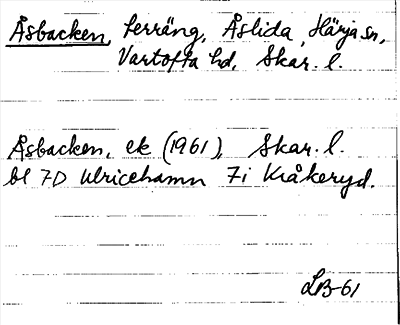 Åsbacken, terräng, Åslida, Härja sn,
Vartofta hd, Skar. l.
Åsbacken, ek (1961), Skar. l.
bl 7D Ulricehamn 7i Kråkeryd.
LB-61